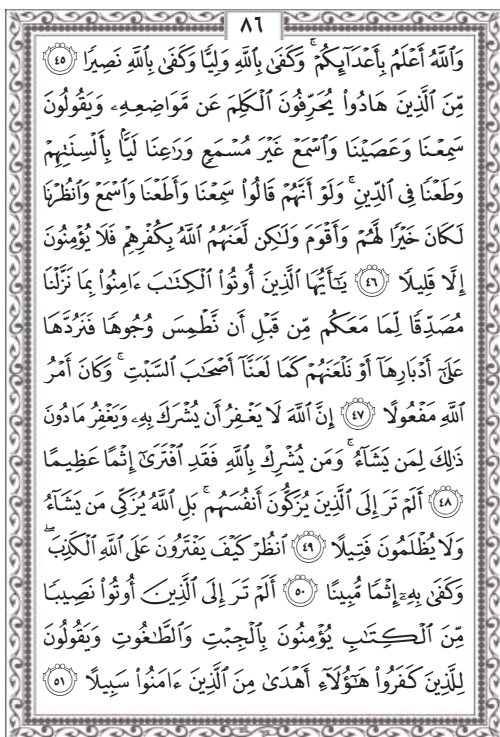 ٨٦
وَٱللَّهُ أَعْلَمُ بِأَعْدَآئِكُمْ ۚ وَكَفَىٰ بِٱللَّهِ وَلِيًّا وَكَفَىٰ بِٱللَّهِ نَصِيرًا ٤٥
مِّنَ ٱلَّذِينَ هَادُوا۟ يُحَرِّفُونَ ٱلْكَلِمَ عَن مَّوَاضِعِهِۦ وَيَقُولُونَ
سَمِعْنَا وَعَصَيْنَا وَٱسْمَعْ غَيْرَ مُسْمَعٍ وَرَٰعِنَا لَيًّۢا بِأَلْسِنَتِهِمْ
وَطَعْنًا فِى ٱلدِّينِ ۚ وَلَوْ أَنَّهُمْ قَالُوا۟ سَمِعْنَا وَأَطَعْنَا وَٱسْمَعْ وَٱنظُرْنَا
لَكَانَ خَيْرًا لَّهُمْ وَأَقْوَمَ وَلَٰكِن لَّعَنَهُمُ ٱللَّهُ بِكُفْرِهِمْ فَلَا يُؤْمِنُونَ
إِلَّا قَلِيلًا ٤٦ يَٰٓأَيُّهَا ٱلَّذِينَ أُوتُوا۟ ٱلْكِتَٰبَ ءَامِنُوا۟ بِمَا نَزَّلْنَا
مُصَدِّقًا لِّمَا مَعَكُم مِّن قَبْلِ أَن نَّطْمِسَ وُجُوهًا فَنَرُدَّهَا
عَلَىٰٓ أَدْبَارِهَآ أَوْ نَلْعَنَهُمْ كَمَا لَعَنَّآ أَصْحَٰبَ ٱلسَّبْتِ ۚ وَكَانَ أَمْرُ
ٱللَّهِ مَفْعُولًا ٤٧ إِنَّ ٱللَّهَ لَا يَغْفِرُ أَن يُشْرَكَ بِهِۦ وَيَغْفِرُ مَا دُونَ
ذَٰلِكَ لِمَن يَشَآءُ ۚ وَمَن يُشْرِكْ بِٱللَّهِ فَقَدِ ٱفْتَرَىٰٓ إِثْمًا عَظِيمًا
٤٨ أَلَمْ تَرَ إِلَى ٱلَّذِينَ يُزَكُّونَ أَنفُسَهُم ۚ بَلِ ٱللَّهُ يُزَكِّى مَن يَشَآءُ
وَلَا يُظْلَمُونَ فَتِيلًا ٤٩ ٱنظُرْ كَيْفَ يَفْتَرُونَ عَلَى ٱللَّهِ ٱلْكَذِبَ ۖ
وَكَفَىٰ بِهِۦٓ إِثْمًا مُّبِينًا ٥٠ أَلَمْ تَرَ إِلَى ٱلَّذِينَ أُوتُوا۟ نَصِيبًا
مِّنَ ٱلْكِتَٰبِ يُؤْمِنُونَ بِٱلْجِبْتِ وَٱلطَّٰغُوتِ وَيَقُولُونَ
لِلَّذِينَ كَفَرُوا۟ هَٰٓؤُلَآءِ أَهْدَىٰ مِنَ ٱلَّذِينَ ءَامَنُوا۟ سَبِيلًا ٥١